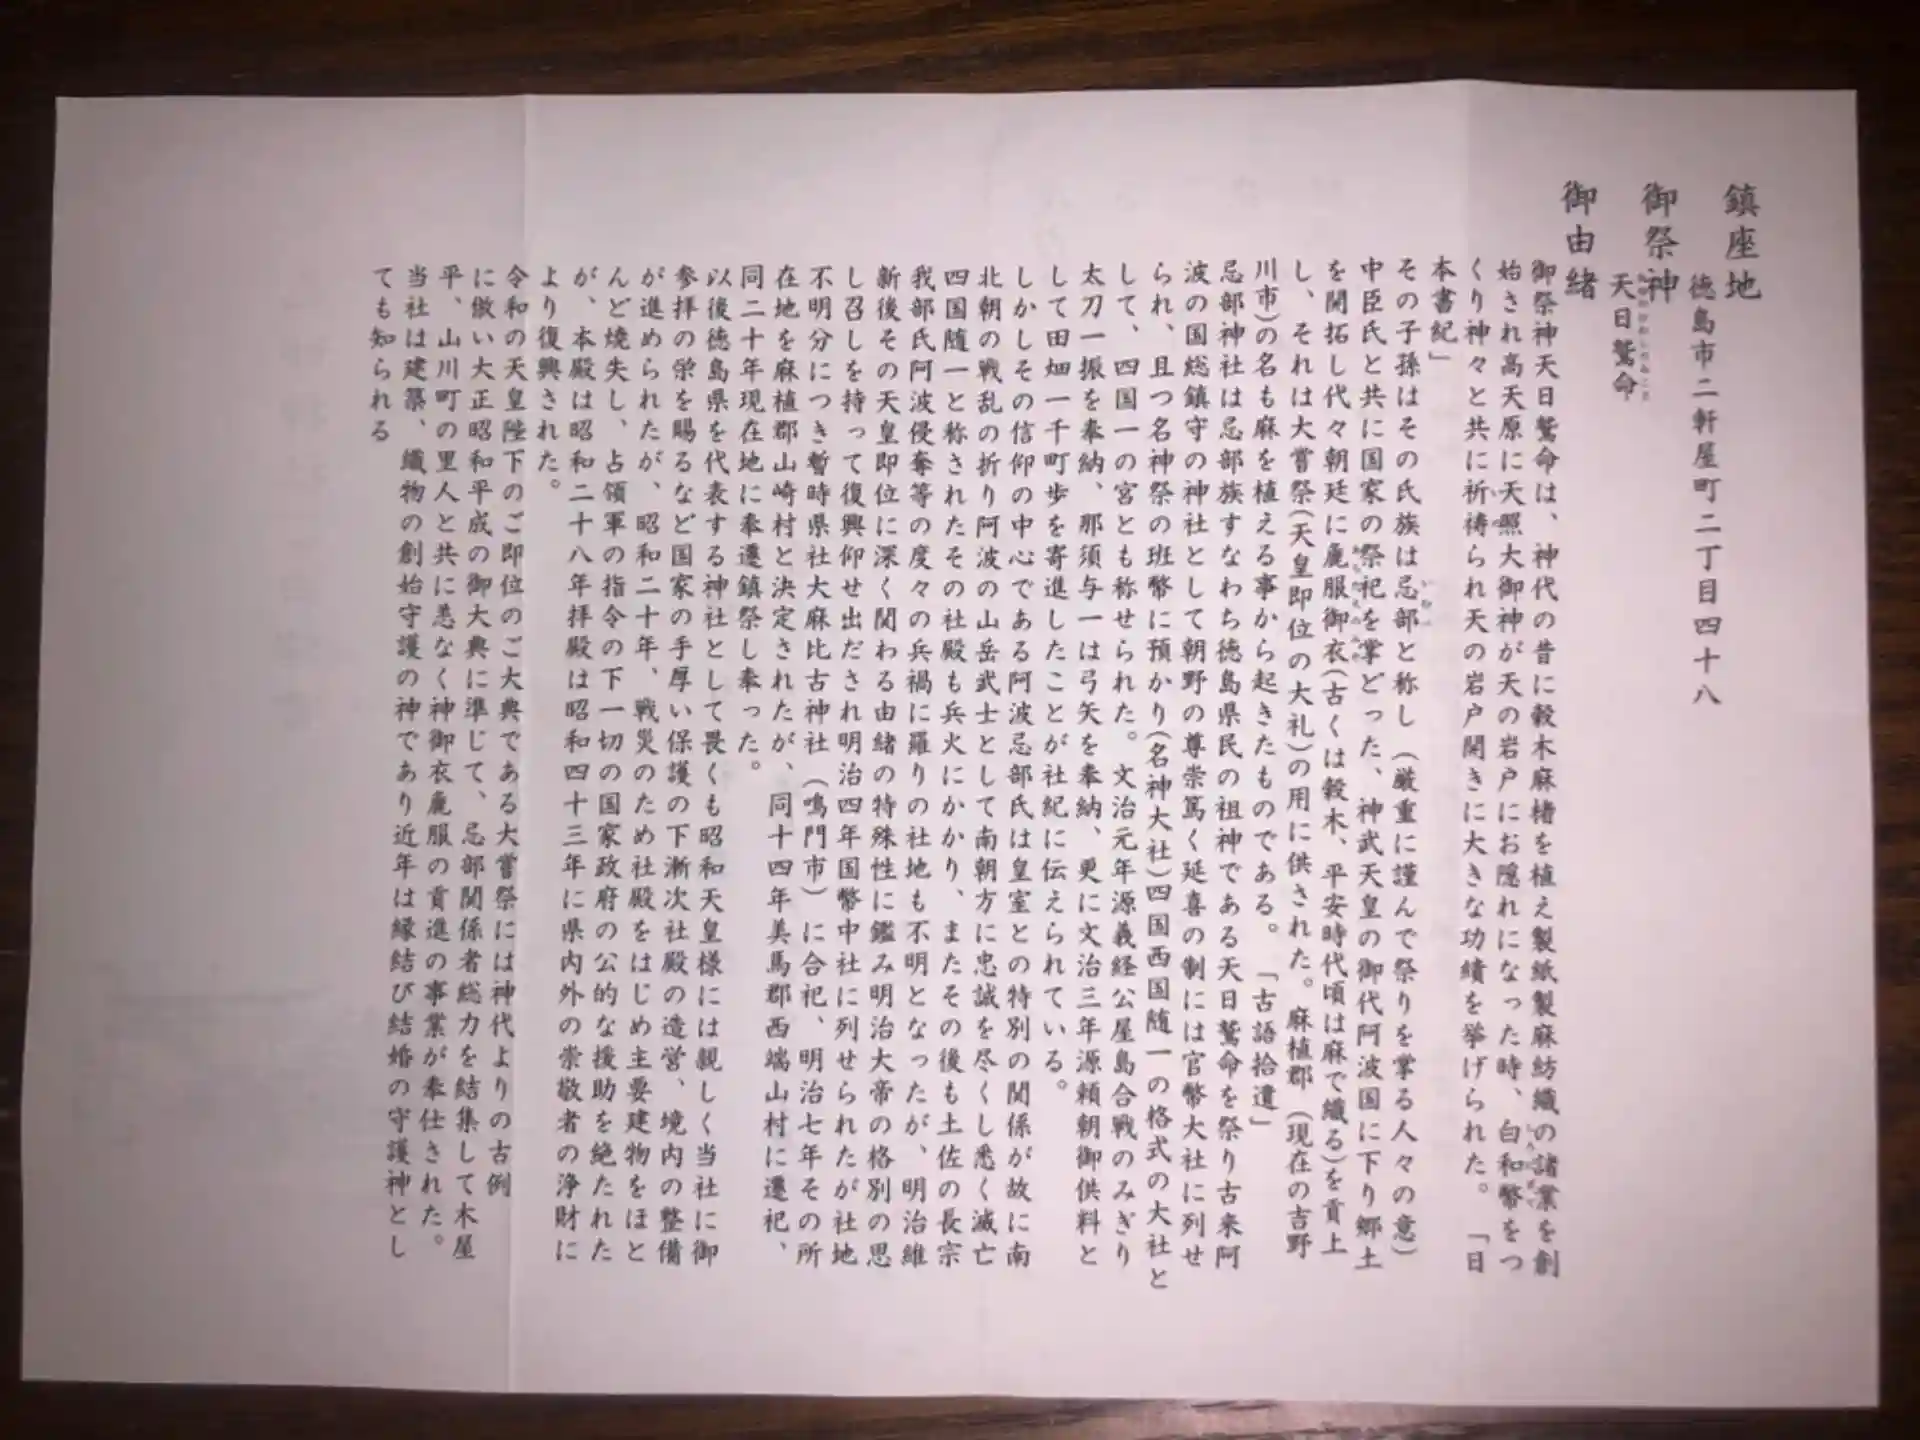 鎮座地
徳島市二軒屋町二丁目四十八
御祭神
天日鷲命
御由緒
御祭神天日鷲命は、神代の昔に穀木麻楮を植え製紙製麻紡織の諸業を創
始され高天原に天照大御神が天の岩戸にお隠れになった時、白和幣をつ
くり神々と共に祈祷られ天の岩戸開きに大きな功績を挙げられた。「日
本書紀」
その子孫はその氏族は忌部と称し（厳重に謹んで祭りを掌る人々の意）
中臣氏と共に国家の祭祀を掌どった、神武天皇の御代阿波国に下り郷土
を開拓し代々朝廷に麁服御衣(古くは穀木、平安時代頃は麻で織る)を貢上
し、それは大嘗祭(天皇即位の大礼)の用に供された。麻植郡（現在の吉野
川市)の名も麻を植える事から起きたものである。「古語拾遺」
忌部神社は忌部族すなわち徳島県民の祖神である天日鷲命を祭り古来阿
波の国総鎮守の神社として朝野の尊崇篤く延喜の制には官幣大社に列せ
られ、且つ名神祭の班幣に預かり(名神大社)四国西国随一の格式の大社と
して、四国一の宮とも称せられた。文治元年源義経公屋島合戦のみぎり
太刀一振を奉納、那須与一は弓矢を奉納、更に文治三年源頼朝御供料と
して田畑一千町歩を寄進したことが社紀に伝えられている。
しかしその信仰の中心である阿波忌部氏は皇室との特別の関係が故に南
北朝の戦乱の折り阿波の山岳武士として南朝方に忠誠を尽くし悉く滅亡
四国随一と称されたその社殿も兵火にかかり、またその後も土佐の長宗
我部氏阿波侵奪等の度々の兵禍に羅りの社地も不明となったが、明治維
新後その天皇即位に深く関わる由緒の特殊性に鑑み明治大帝の格別の思
し召しを持って復興仰せ出だされ明治四年国幣中社に列せられたが社地
不明分につき暫時県社大麻比古神社（鳴門市）に合祀、明治七年その所
在地を麻植郡山崎村と決定されたが、同十四年美馬郡西端山村に遷祀、
同二十年現在地に奉遷鎮祭し奉った。
以後徳島県を代表する神社として畏くも昭和天皇様には親しく当社に御
参拝の栄を賜るなど国家の手厚い保護の下漸次社殿の造営、境内の整備
が進められたが、昭和二十年、戦災のため社殿をはじめ主要建物をほと
んど焼失し、占領軍の指令の下一切の国家政府の公的な援助を絶たれた
が、本殿は昭和二十八年拝殿は昭和四十三年に県内外の崇敬者の浄財に
より復興された。
令和の天皇陛下のご即位のご大典である大嘗祭には神代よりの古例
に倣い大正昭和平成の御大典に準じて、忌部関係者総力を結集して木屋
平、山川町の里人と共に恙なく神御衣麁服の貢進の事業が奉仕された。
当社は建築、織物の創始守護の神であり近年は縁結び結婚の守護神とし
ても知られる